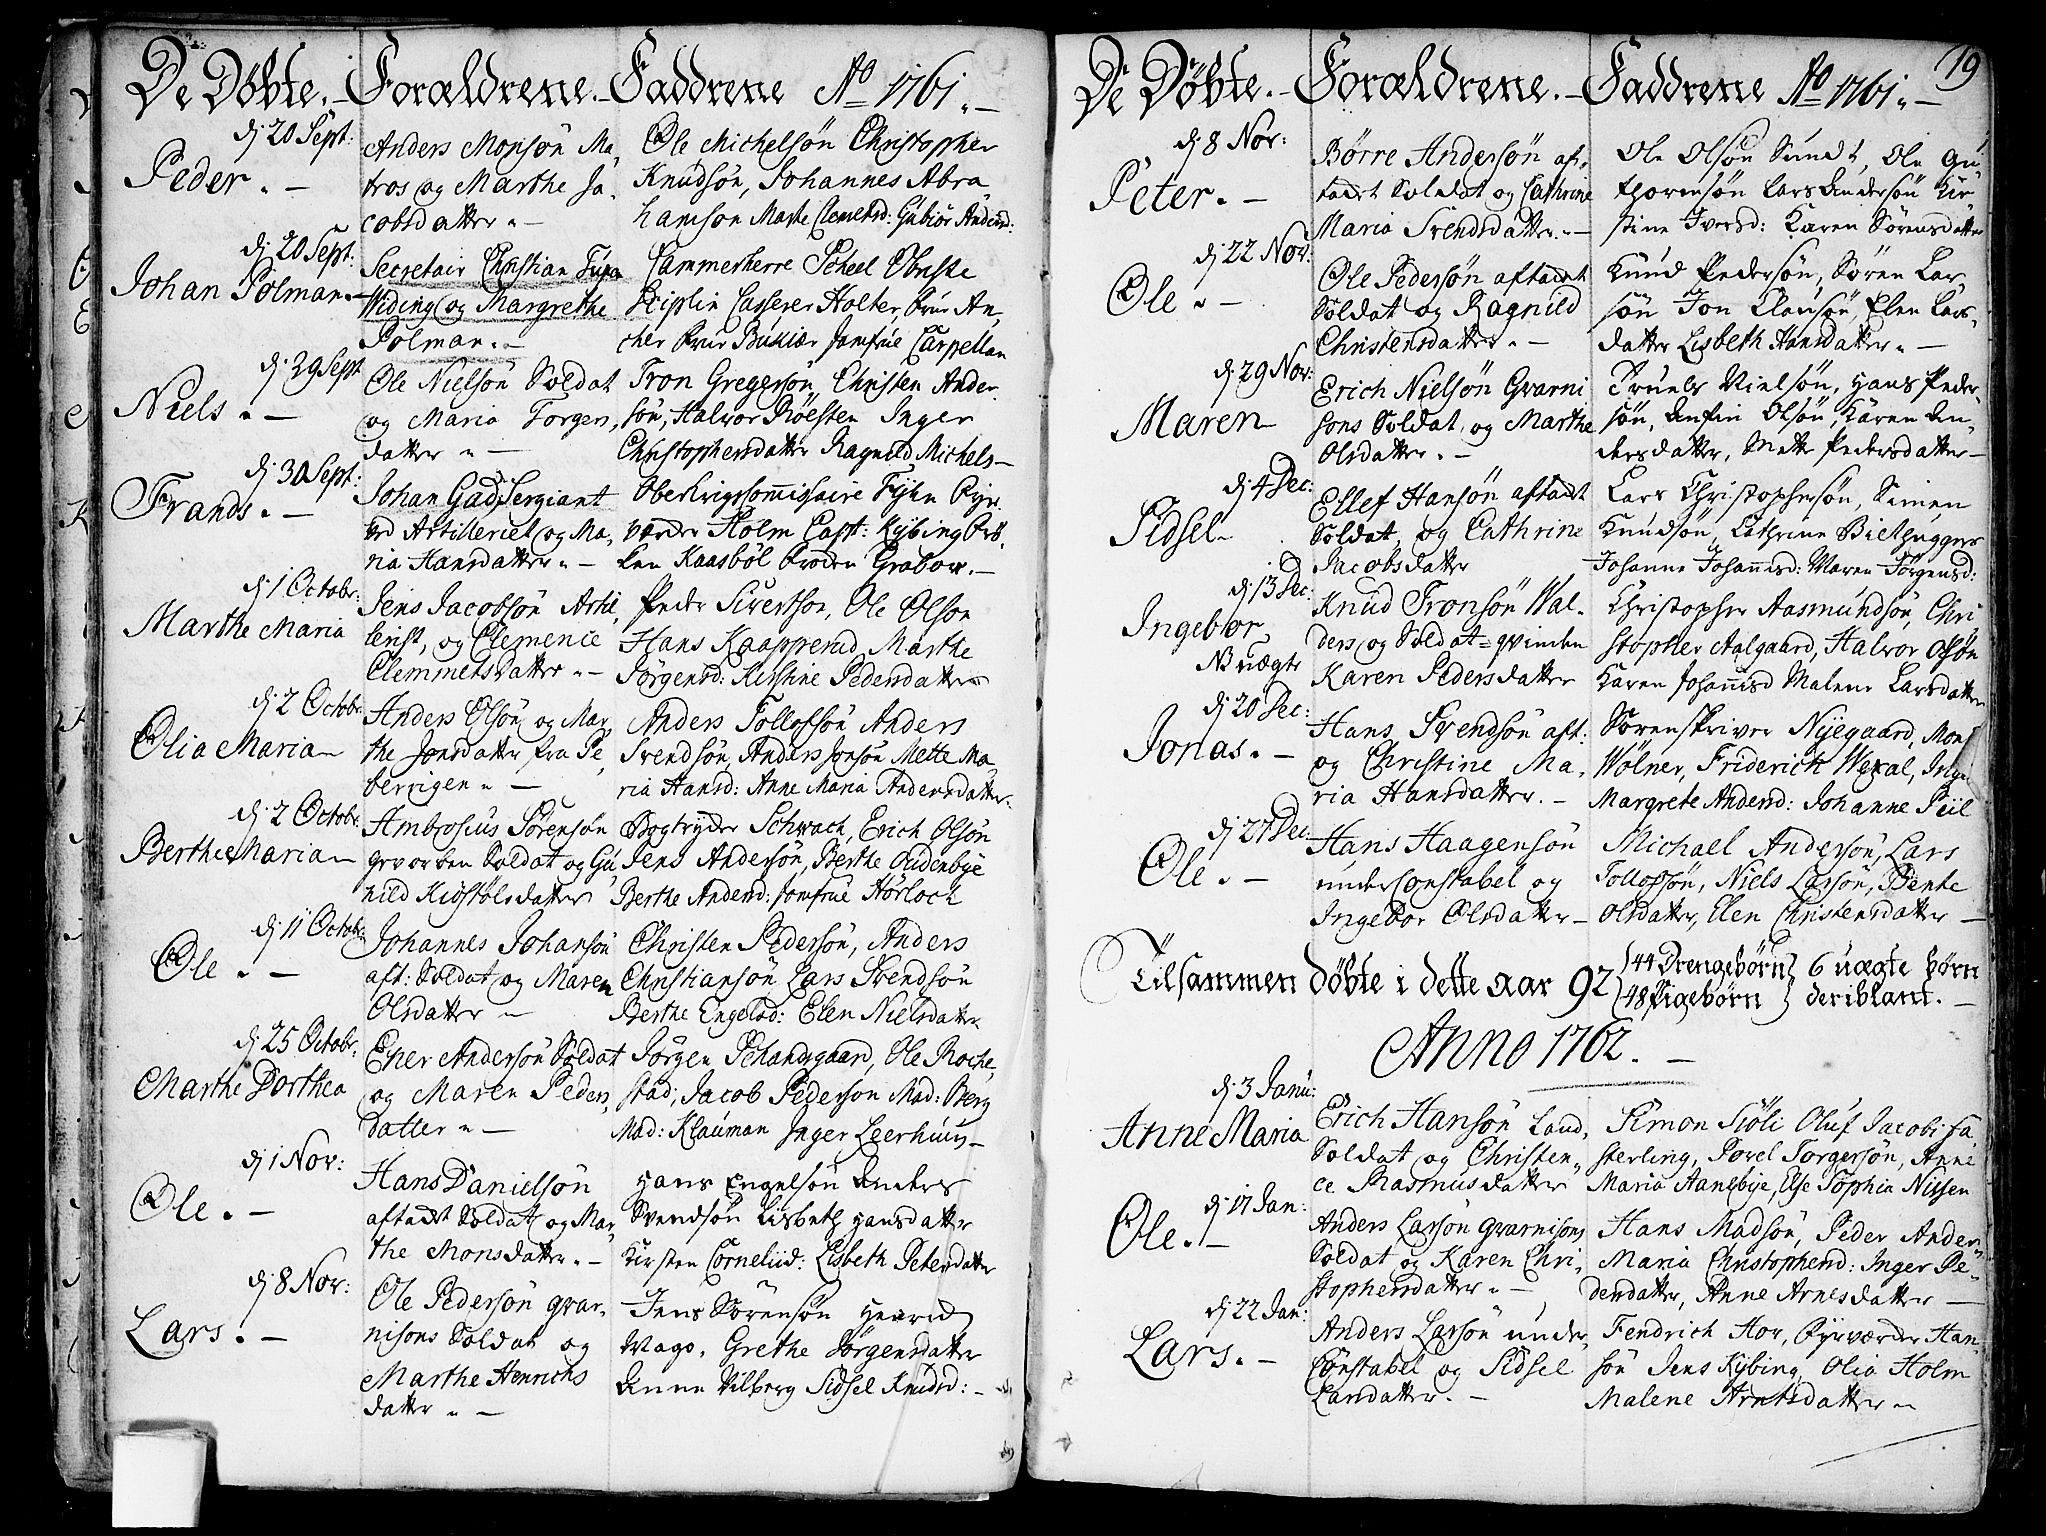 De Döbte. – Forældrene. – Faddrene Ao 1761. –
dj 20 Sept:
Peder. –
Anders Monsön Ma,
tros og Marthe Ja,
cobsdatter. –
Ole Michelsön Christopher
Knudsön, Johannes Abra
hamson Marte Clemetsd: Gubiör Andersd:
dj 20 Sept:
Johan Polman. –
Secretair Christian
Widing og Margrethe
Polman. –
Cammerherre Obriste
Casserer Holter, frue An,
cher frue Jomfrue Cappellan
dj 29 Sept
Niels. –
Ole Nielsön Soldat
og Maria Torgers,
datter. –
Tron Gregersön, Christen Ander
sön, Halvor Röesten Inger
Christophersdatter Ragnild Michels –
dj 30 Sept:
Frands. –
Johan Gad Sergiant
ved Artilleriet og Ma,
ria Hansdatter. –
Oberkrigscommissaire Fyhn Fyr
værder Holm Capt: Kybing Frö,
ken Kaasböl Fröden Grabow. –
dj 1 Octobr:
Marthe Maria
Jens Jacobsön Artil
lerist, og Clemence
Clemmetsdatter. –
Peder Sivertson, Ole Olson
Hans Kaapperud Marthe
Jörgensd: Kirstine Pedersdatter
dj 2 Octobr:
Olia Maria –
Anders Olsön og Mar,
the Jonsdatter fra Pe,
bervigen. –
Anders Tollofsön Anders
Svendsön, Anders Jonsön Mette Ma,
ria Hansd: Anne Maria Andersdatter.
dj 2 Octobr:
Berthe Maria –
Ambrosius Sörensön
gevorben Soldat og Gu
nild Kidstölsdatter
Bogtryder Schwach, Erich Olsön
Jens Andersön, Berthe Oudenbye
Berthe Andersd: Jomfrue Hörloch
dj 11 Octobr:
Ole. –
Johannes Johansön
aft: Soldat og Maren
Olsdatter –
Christen Pedersön, Anders
Christiansön Lars Svendsön
Berthe Engelsd: Elen Nielsdatter
dj 25 Octobr,
Marthe Dorthea
Ener Andersön Soldat
og Maren Peders,
datter. –
Jörgen Schandsgaard, Ole Roche,
stad, Jacob Pederson Mad: Berg
Mad: Klauman Inger Leerhuus –
dj 1 Nov:
Ole. –
Hans Danielsön
aftact Soldat og Mar,
the Monsdatter. –
Hans Engelsön Anders
Svendsön Lisbeth Hansdatter
Kirsten Corneliid: Lisbeth Petersdatter
dj 8 Nov:
Lars. –
Ole Pedersön gvar,
nisons Soldat og
Marthe Henrichs
datter. –
Jens Sörensön Henrich
Wags, Grethe Jörgensdatter
Anne Vilberg Sidsel Knudsd: –
19
De Döbte. – Forældrene. – Faddrene Ao 1761. –
dj 8 Nov:
Peter. –
Börre Andersön af,
tact Soldat og Cathrine
Maria Svendsdatter. –
Ole Olsön Sundt, Ole Gu
thormsön Lars Andersön Kir
stine Iversd: Karen Sörensdatter
dj 22 Nov:
Ole. –
Ole Pedersön aftact
Soldat og Ragnild
Christensdatter. –
Knud Pedersön, Sören Lar,
sön Jon Clausön, Elen Lars,
datter Lisbeth Hansdatter. –
dj 29 Nov:
Maren
Erich Nielsön Gvarni
sons Soldat, og Marthe
Olsdatter. –
Truels Nielsön, Hans Peder,
sön, Anfin Olsön, Karen An,
dersdatter, Mette Pedersdatter –
dj 4 Dec:
Sidsel –
Ellef Hansön aftact
Soldat, og Cathrine
Jacobsdatter
Lars Christophersön, Simen
Knudsön, Cathrine Bilthuggers
Johanne Johannisd: Maren Jörgensd:
dj 13 Dec
Ingebor
NB uægte
Knud Tronsön Wal,
ders og Soldat = qvinden
Karen Pedersdatter
Christopher Aasmundsön, Chri
stopher Aalgaard, Halvor Olsön
Karen Johannisd Malene Larsdatter
dj 20 Dec:
Jonas. –
Hans Svendsön aft:
og Christine Ma,
ria Hansdatter. –
Sorenskriver Nyegaard, Mons
Wölner, Friderich Wexal,
Margrete Andersd: Johanne Piil
dj 27 Dec:
Ole. –
Hans Haagensön
underConstabel og
Ingebor Olsdatter –
Michael Andersön, Lars
Tollofsön, Niels Larsön, Bente
Olsdatter, Elen Christensdatter –
Tilsammen döbte i dette aar 92 { 44 Drengebörn } 6 uægte börn
{ 48 Pigebörn } deriblant. –
Anno 1762. –
dj 3 Janu:
Anne Maria
Erich Hansön Land,
Soldat og Christen,
ce Rasmusdatter
Simon Siöli Oluf Jacobi Fa,
sterling, Povel Torgersön, Anne
Maria Aanebye, Else Sophia Nissen
dj 17 Jan:
Ole. –
Anders Larsön gvarnisons
Soldat og Karen Chri,
stophersdatter. –
Hans Madsön, Peder Anders
Maria Christophersd: Inger Pe,
dersdatter, Anne Arnesdatter –
dj 22 Jan:
Lars. –
Anders Larsön under,
Constabel og Sidsel
Larsdatter. –
Fendrich Hor, Fyrværder Han,
sön Jens Kybing, Olia Holm
Malene Arntsdatter. –